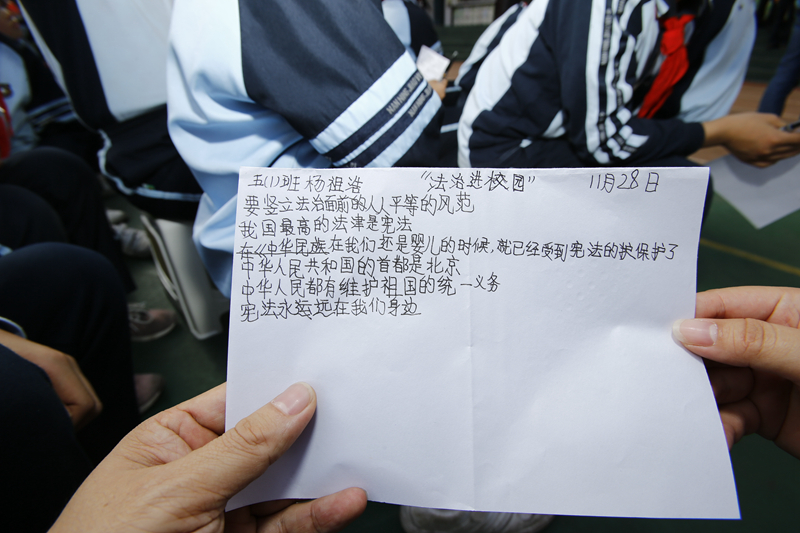 五(1)班 杨祖浩 “法治进校园” 11月28日
要竖立法治面前的人人平等的风范
我国最高的法津是宪法
在《中华民族在我们还是婴儿的时候,就已经受到宪法的护保护了
中华人民共和国的首都是北京
中华人民都有维护祖国的统一义务
宪法永远远在我们身边